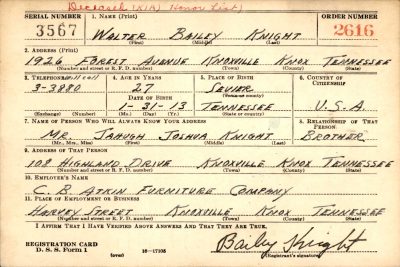 Deceased (KIA) Honor List)
SERIAL NUMBER 1. NAME (Print) ORDER NUMBER
3567 WALTER BAILEY KNIGHT 2616
(First) (Middle) (Last)
2. ADDRESS (Print)
1926 FOREST AVENUE KNOXVILLE KNOX TENNESSEE
(Number and street or R. F. D. number) (Town) (County) (State)
3. TELEPHONE 4. AGE IN YEARS 5. PLACE OF BIRTH 6. COUNTRY OF CITIZENSHIP
3-3880 27 SEVIER
(Town or county)
DATE OF BIRTH
1-31-13 TENNESSEE U.S.A.
(Mo.) (Day) (Yr.) (State or country)
7. NAME OF PERSON WHO WILL ALWAYS KNOW YOUR ADDRESS 8. RELATIONSHIP OF THAT PERSON
MR. JOSHUA KNIGHT BROTHER
(Mr., Mrs., Miss) (First) (Middle) (Last)
9. ADDRESS OF THAT PERSON
108 HIGHLAND DRIVE KNOXVILLE KNOX TENNESSEE
(Number and street or R. F. D. number) (Town) (County) (State)
10. EMPLOYER'S NAME
C. B. ATKIN FURNITURE COMPANY
11. PLACE OF EMPLOYMENT OR BUSINESS
HARVEY STREET KNOXVILLE KNOX TENNESSEE
(Number and street or R. F. D. number) (Town) (County) (State)
I AFFIRM THAT I HAVE VERIFIED ABOVE ANSWERS AND THAT THEY ARE TRUE.
REGISTRATION CARD
D. S. S. Form 1 (over) 16-17105
Bailey Knight
(Registrant's signature)